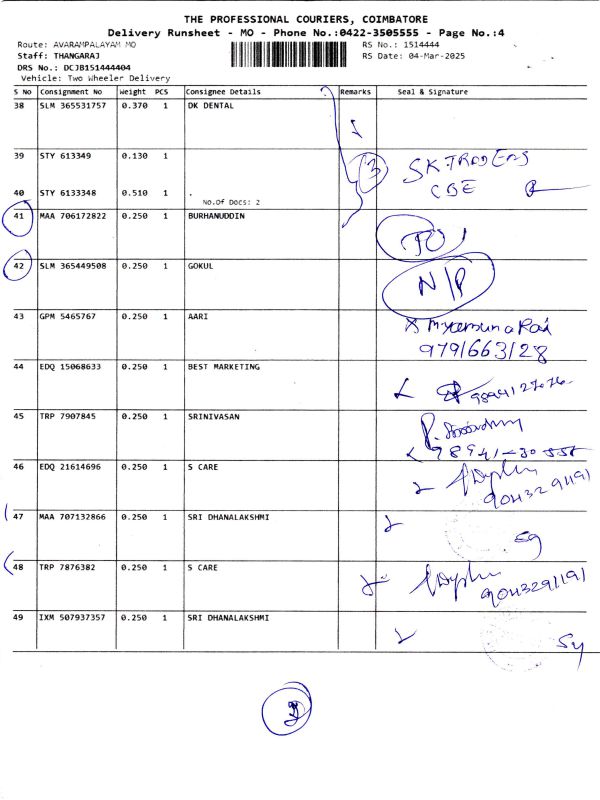 THE PROFESSIONAL COURIERS, COIMBATORE
Delivery Runsheet - MO - Phone No.:0422-3505555 - Page No.:4
Route: AVARAMPALAYAM MO
RS No.: 1514444
Staff: THANGARAJ
RS Date: 04-Mar-2025
DRS No.: DCJB151444404
Vehicle: Two Wheeler Delivery
S No Consignment No Weight PCS Consignee Details Remarks Seal & Signature
38 SLM 365531757 0.370 1 DK DENTAL
39 STY 613349 0.130 1
3 SK TRADERS
CBE
40 STY 6133348 0.510 1 .
No.Of Docs: 2
41 MAA 706172822 0.250 1 BURHANUDDIN
42 SLM 365449508 0.250 1 GOKUL N/P
43 GPM 5465767 0.250 1 AARI
9791663128
44 EDQ 15068633 0.250 1 BEST MARKETING
45 TRP 7907845 0.250 1 SRINIVASAN
46 EDQ 21614696 0.250 1 S CARE
9043291191
47 MAA 707132866 0.250 1 SRI DHANALAKSHMI
48 TRP 7876382 0.250 1 S CARE
9043291191
49 IXM 507937357 0.250 1 SRI DHANALAKSHMI